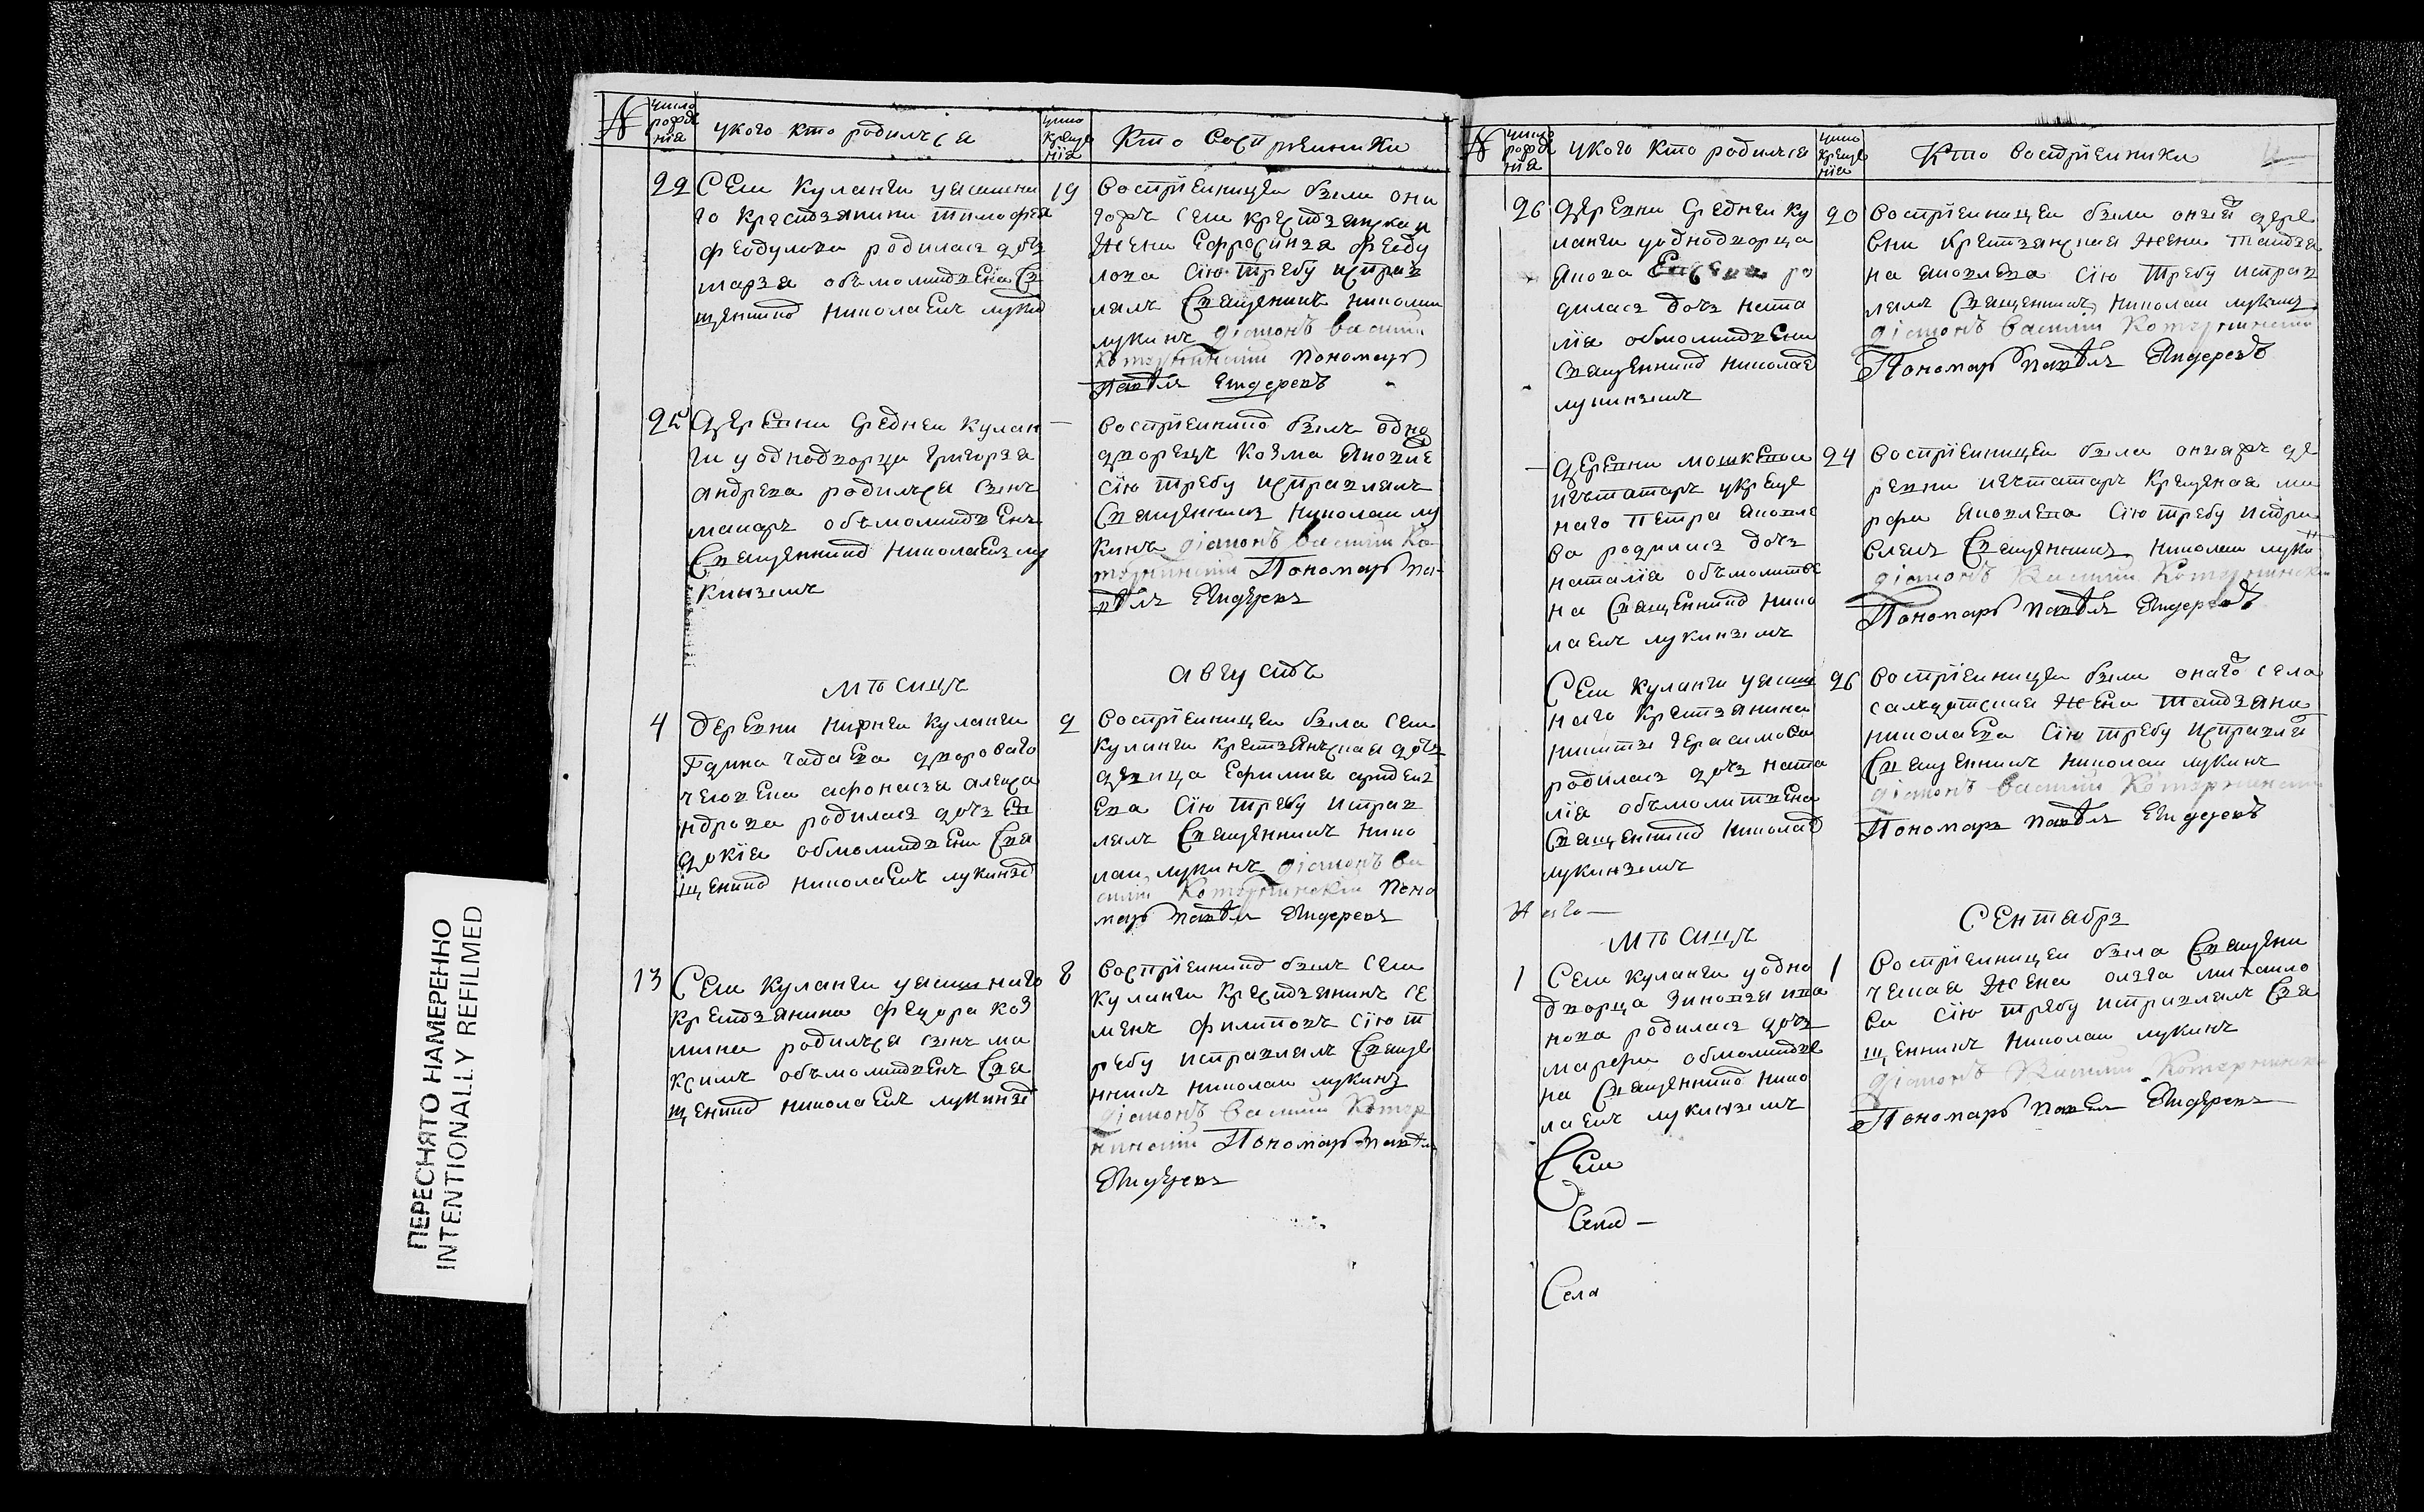 №
число рожденія
у кого кто родился
число крещенія
Кто воспріемники
22
Села Куланги уясашна
го крестьянина тимофея
феодулова родилась дочь
марья обмолитвена свя
щенником николаем лукин
19
воспріемницею была она
гожъ села крестьянская
жена Ефросинья феду
лова сію требу исправ
лялъ священникъ николаи
лукинъ діаконъ василии
Котернинскии пономарь
Павелъ Яндеревъ
25
деревни Средней Кулан
ги у однодворца григорья
андреева родился сынъ
макаръ обмолитвенъ
священником николаем лу
кинымъ
—
воспріемникомъ былъ одно
дворецъ козма яковле
сію требу исправлялъ
священникъ николаи лу
кинъ діаконъ василии Ко
тернинскии Пономарь па
велъ Яндеревъ
мѣсяцъ
августъ
4
деревни нижнеи куланги
чадаева двороваго
человека афонасья алекса
ндрова родилась дочь ев
докія обмолитвена свя
щеником николаемъ лукиным
2
воспріемницею была села
куланги крестьянская дочь
девица Ефимия
ева сію требу исправ
лялъ священникъ нико
лаи лукинъ діаконъ ва
силіи Котернинскіи поно
марь павелъ Яндеревъ
13
Села куланги уясашнаго
крестьянина федора коз
мина родился сынъ ма
ксимъ обмолитвенъ свя
щеником николаемъ лукиным
8
воспріемником былъ села
куланги крестьянинъ се
менъ филиповъ сію т
ребу исправлялъ свяще
нникъ николаи лукинъ
діаконъ василии Котер
нинскии Пономарь павелъ
Яндеревъ
№
число рожденія
у кого кто родился
число крещенія
Кто воспріемники
26
деревни Среднеи ку
ланги у однодворца
якова ро
дилась дочь ната
лія обмолитвена
священником николае
лукинымъ
20
воспріемницеи была онои дере
вни крестьянская жена татья
на яковлева сію требу исправ
лялъ священникъ николаи лукинъ
діаконъ василіи Котернинскии
Пономарь павелъ Яндеревъ
—
деревни мошкеевои
исътатаръ укреще
наго петра яковле
ва родилась дочь
наталіа обмолитве
на священником нико
лаемъ лукинымъ
24
воспріемницеи была онаяжъ де
ревни исътатаръ крещеная ма
рфа яковлева сію требу испра
влялъ священникъ николаи лукин
діаконъ Василіи Котернински
Пономарь павелъ Яндеревъ
Села куланги уясаш
наго крестьянина
никиты герасимова
родилась дочь ната
лія обмолитвена
священником николае
лукинымъ
26
воспріемницеи была онаго села
салдатская жена татьяна
николаева сію требу исправля
священникъ николаи лукинъ
діаконъ василии Котернинскии
Пономарь павелъ Яндеревъ
мѣсяцъ
Сентябрь
1
Села куланги у одно
дворца зиновья ива
нова родилась дочь
марфа обмолитве
на священником нико
лаемъ лукинымъ
1
воспріемницеи была священи
ческая жена олга михаило
ва сію требу исправлялъ свя
щенникъ николаи лукинъ
діаконъ Василии Котернински
Пономарь павелъ Яндеревъ
Села
Села
ПЕРЕСНЯТО НАМЕРЕННО
INTENTIONALLY REFILMED